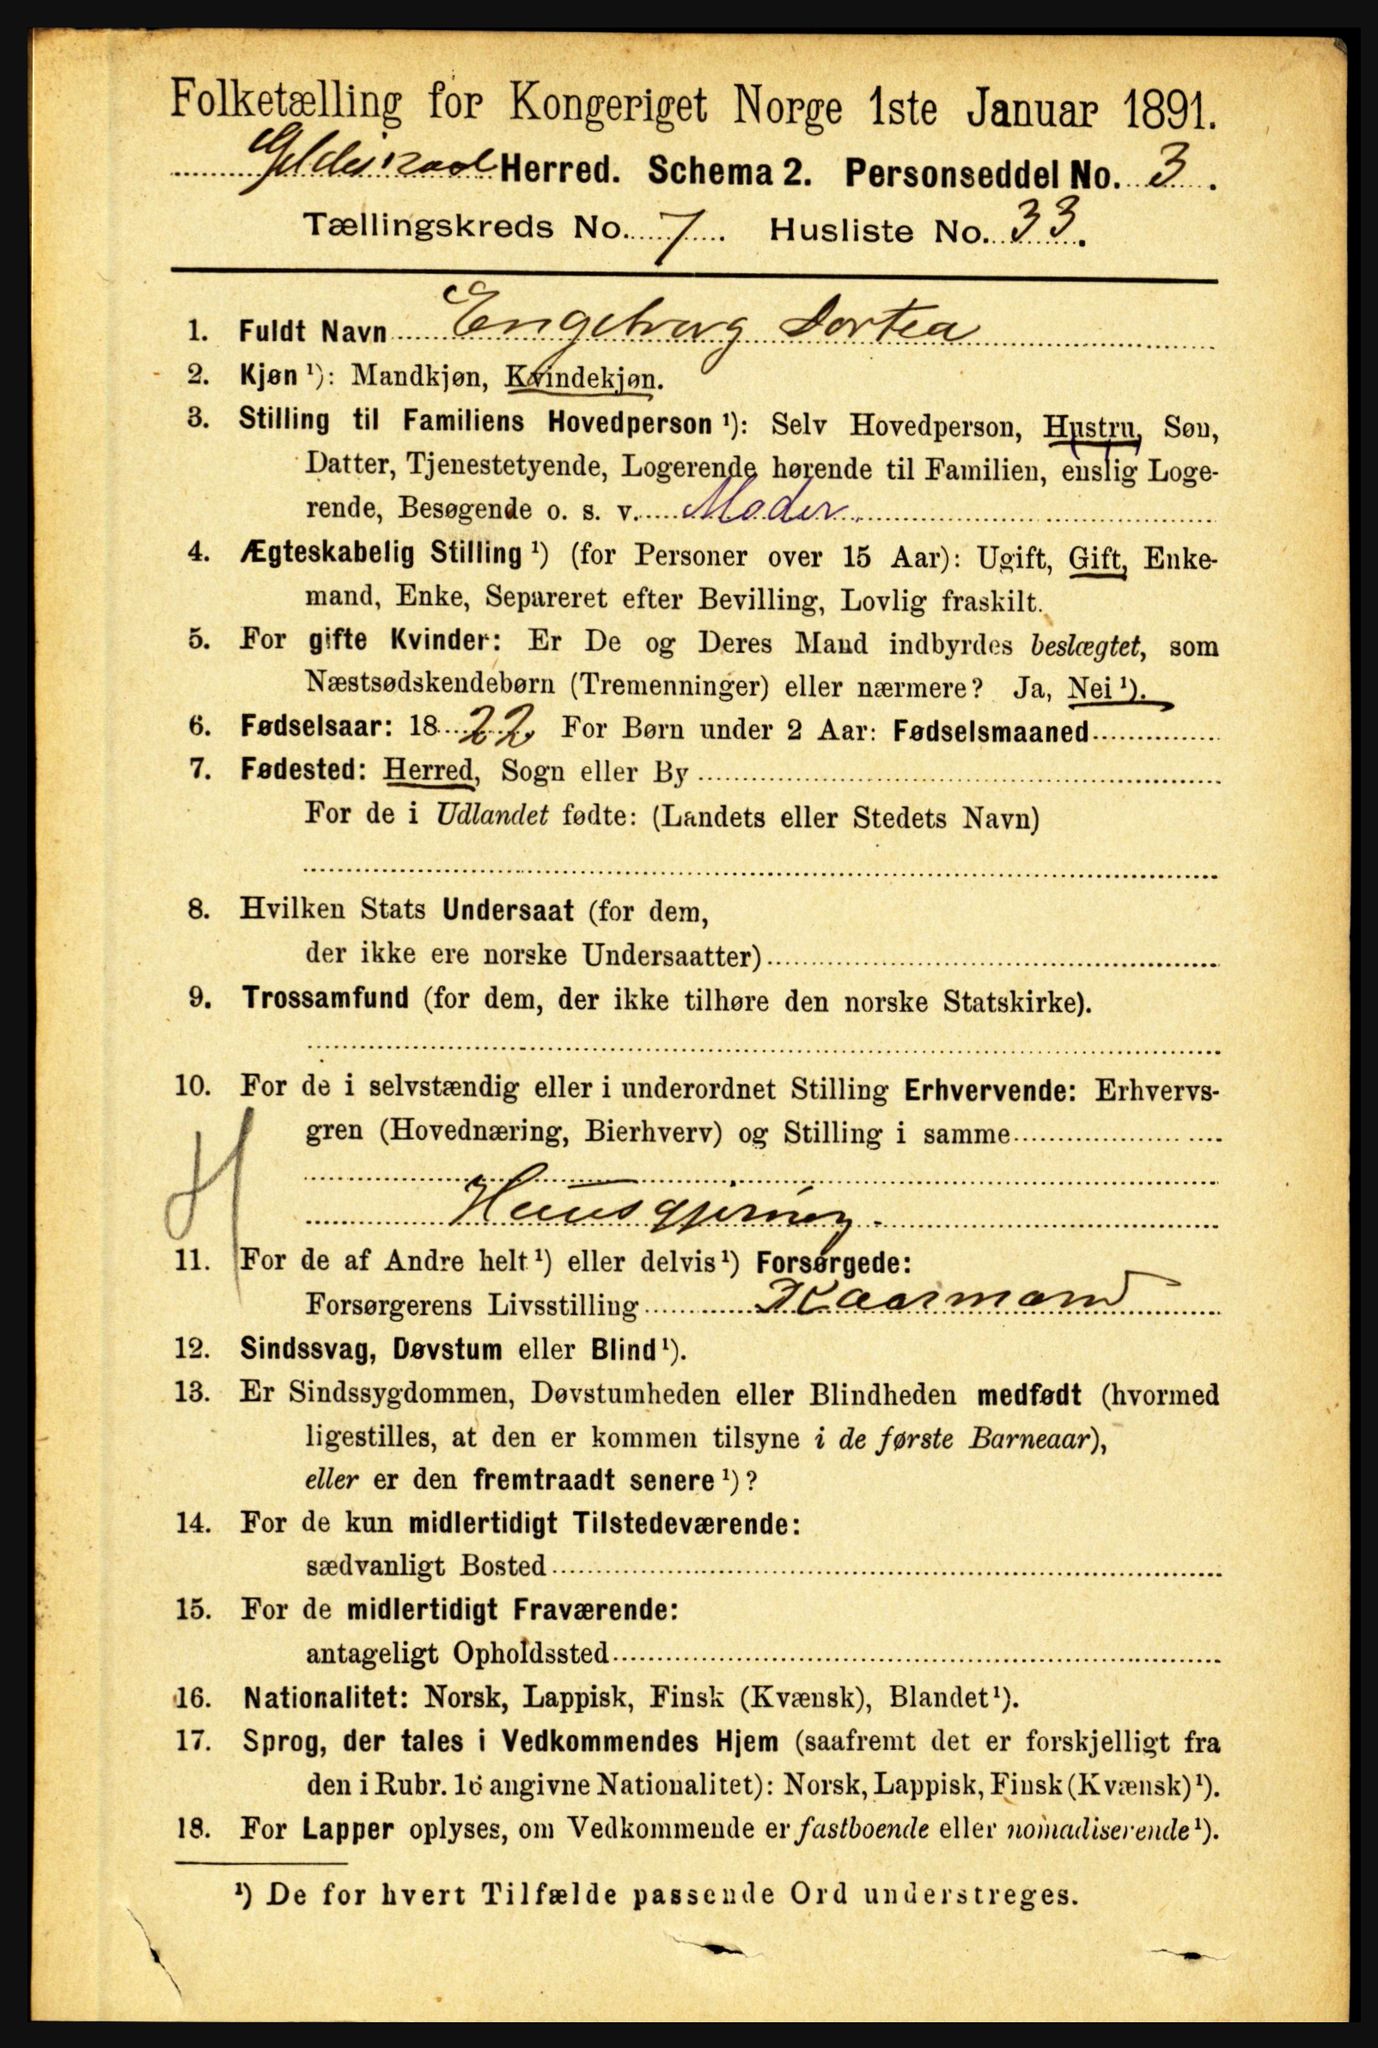 Folketælling for Kongeriget Norge 1ste Januar 1891.
Gildeskaal Herred. Schema 2. Personseddel No. 3.
Tællingskreds No. 7. Husliste No. 33.
1. Fuldt Navn Engebrorg Dortea
2. Kjøn ¹): Mandkjøn, Kvindekjøn.
3. Stilling til Familiens Hovedperson ¹): Selv Hovedperson, Hustru, Søn,
Datter, Tjenestetyende, Logerende hørende til Familien, enslig Loge-
rende, Besøgende o. s. v. Moder
4. Ægteskabelig Stilling ¹) (for Personer over 15 Aar): Ugift, Gift, Enke-
mand, Enke, Separeret efter Bevilling, Lovlig fraskilt.
5. For gifte Kvinder: Er De og Deres Mand indbyrdes beslægtet, som
Næstsødskendebørn (Tremenninger) eller nærmere? Ja, Nei ¹).
6. Fødselsaar: 1822 For Børn under 2 Aar: Fødselsmaaned
7. Fødested: Herred, Sogn eller By
For de i Udlandet fødte: (Landets eller Stedets Navn)
8. Hvilken Stats Undersaat (for dem,
der ikke ere norske Undersaatter)
9. Trossamfund (for dem, der ikke tilhøre den norske Statskirke).
10. For de i selvstændig eller i underordnet Stilling Erhvervende: Erhvervs-
gren (Hovednæring, Bierhverv) og Stilling i samme
H
Huusgjerning
11. For de af Andre helt ¹) eller delvis ¹) Forsørgede:
Forsørgerens Livsstilling Kaarmand
12. Sindssvag, Døvstum eller Blind ¹).
13. Er Sindssygdommen, Døvstumheden eller Blindheden medfødt (hvormed
ligestilles, at den er kommen tilsyne i de første Barneaar),
eller er den fremtraadt senere ¹)?
14. For de kun midlertidigt Tilstedeværende:
sædvanligt Bosted
15. For de midlertidigt Fraværende:
antageligt Opholdssted
16. Nationalitet: Norsk, Lappisk, Finsk (Kvænsk), Blandet ¹).
17. Sprog, der tales i Vedkommendes Hjem (saafremt det er forskjelligt fra
den i Rubr. 16 angivne Nationalitet): Norsk, Lappisk, Finsk (Kvænsk) ¹).
18. For Lapper oplyses, om Vedkommende er fastboende eller nomadiserende ¹).
¹) De for hvert Tilfælde passende Ord understreges.